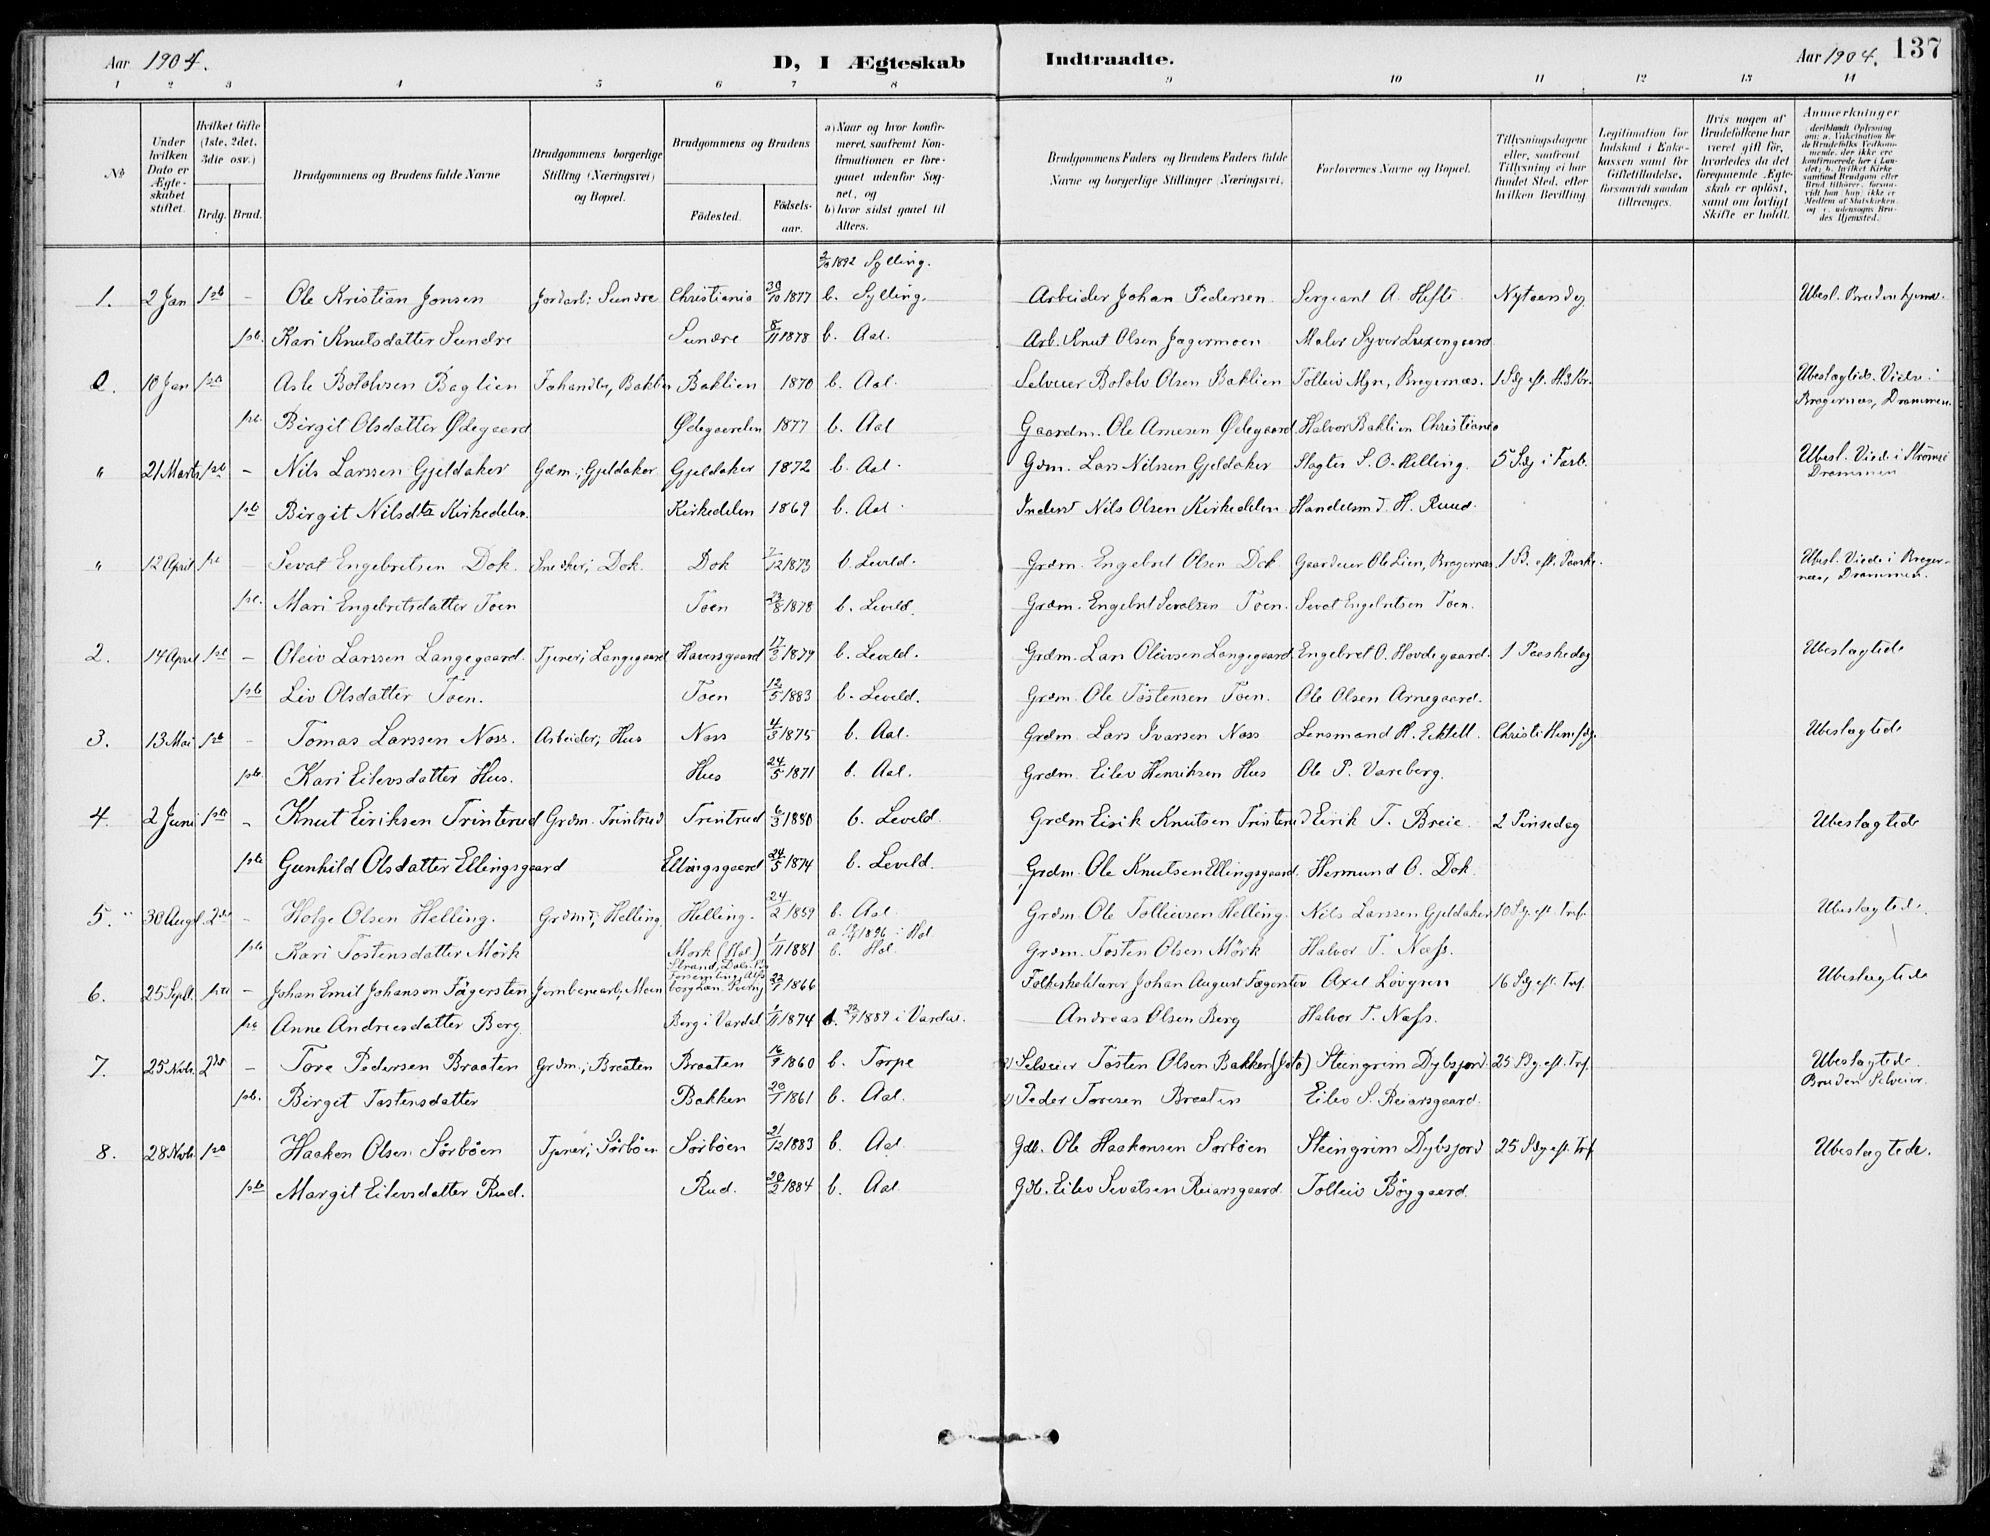 Aar 1904. D, I Ægteskab Indtraadte. Aar 1904. 137
1 2 3 4 5 6 7 8 9 10 11 12 13 14
No
Under hvilken Dato er Ægteskabet stiftet.
Hvilket Gifte (1ste, 2det, 3die osv.)
Brdg. Brud.
Brudgommens og Brudens fulde Navne
Brudgommens borgerlige Stilling (Næringsvei) og Bopæl.
Brudgommens og Brudens
Fødested. Fødselsaar.
a) Naar og hvor konfirmeret, saafremt Konfirmationen er foregaaet udenfor Sognet, og
b) hvor sidst gaaet til Alters.
Brudgommens Faders og Brudens Faders fulde Navne og borgerlige Stillinger (Næringsvei).
Forlovernes Navne og Bopæl.
Tillysningsdagene eller, saafremt Tillysning ei har fundet Sted, efter hvilken Bevilling
Legitimation for Indskud i Enkekassen samt for Giftetilladelse, forsaavidt saadan tiltrænges.
Hvis nogen af Brudefolkene har været gift før, hvorledes da det foregaaende Ægteskab er opløst, samt om lovligt Skifte er holdt.
Anmærkninger
(deriblandt Oplysning om: a. Vakcination for de Brudefolks Vedkommende, der ikke ere konfirmerede her i Landet; b. hvilket Kirkesamfund Brudgom eller Brud tilhører, forsaavidt han (hun) ikke er Medlem af Statskirken, og c. udensogns Brudes Hjemsted.)
1892 Sylling.
1. 2 Jan 1ste - Ole Kristian Jonsen Jordarb; Sundre Christiania 30/10 1877 b. Sylling. Arbeider Johan Pedersen Sergeant A. Hefte Nytaarsdag Ubesl. Bruden hjemv.
1ste Kari Knutsdatter Sundre Sundre 8/11 1878 b. Aal. Arb. Knut Olsen Jagermoen Maler Syver
2. 10 Jan 1ste - Asle Bololvsen Baglien Baklien 1870 b. Aal. Selveier Bololv Olsen Baklien Tolleiv Myr, Bragernæs. Ubeslægtede. Viede i Bragernæs, Drammen.
1ste Birgit Olsdatter Ødegaard Ødegaarden 1877 b. Aal Gaardm. Ole Arnesen Ødegaard Halvor Baklien Christiania
" 21 Marts 1ste - Nils Larssen Gjeldaker Gdm; Gjeldaker Gjeldaker 1872 b. Aal. Gdm. Lars Nilssen Gjeldaker Slagter S. O. Helling. 5 Sdg i Fasb. Ubesl. Viede i Strømsø Drammen
1ste Birgit Nilsdtr Kirkedelen Kirkedelen 1869 b. Aal. Inderst Nils Olsen Kirkedelen Handelsmd. H. Ruud.
" 12 April 1ste - Sevat Engebretsen Dok. Snedker; Dok. Dok 7/12 1873 b. Leveld. Grdm. Engebret Olsen Dok Gaardeier Ole Lien, Bragernæs. 1 S. eft. Paaske. Ubesl. Viede i Bragernæs, Drammen.
1ste Mari Engebretsdatter Toen Toen 23/8 1878 b. Leveld. Grdm. Engebret Sevatsen Toen. Sevat Engebretsen Toen.
2. 14 April 1ste - Oleiv Larssen Langegaard. Tjener; Langegaard Haversgaard 17/3 1879 b. Leveld. Grdm. Lars Oleivsen Langegaard Engebret O. Hovdegaard. 1 Paaskedag Ubeslægtede
1ste Liv Olsdatter Toen. Toen 12/5 1883 b. Leveld. Grdm. Ole Tostensen Toen. Ole Olsen Arnegaard.
3. 13 Mai 1ste - Tomas Larssen Næss. Arbeider; Hus Næss 4/3 1875 b. Aal. Grdm. Lars Ivarsen Næss Lensmand H. Eltell. Christi Himfdg. Ubeslægtede
1ste Kari Eilevsdatter Hus. Hus 24/5 1871 b. Aal. Grdm. Eilev Henriksen Hus Ole P. Vareberg.
4. 2 Juni 1ste - Knut Eiriksen Trinterud Grdm. Trintrud Trintrud 6/3 1880 b. Leveld. Grdm Eirik Knutsen Trinterud Eirik T. Breie. 2 Pinsedag Ubeslægtede
1ste Gunhild Olsdatter Ellingsgaard Ellingsgaard 24/5 1874 b. Leveld. Grdm. Ole Knutsen Ellingsgaard. Hermund O. Dok.
5. 30 Augst. 2det - Holge Olsen Helling. Grdmd; Helling. Helling. 24/2 1859 b. Aal Grdm. Ole Tolleivsen Helling. Nils Larssen Gjeldaker 10 Sg. eft. Tref. Ubeslægtede.
1ste Kari Tostensdatter Mørk Mørk (Hol) 1/11 1881 a 1896 i Hol b. Hol. Grdm. Tosten Olsen Mørk Halvor T. Næss.
6. 25 Septb. 1ste - Johan Emil Johanson Fägersten Jernbanearb; Moen Strand, Dals 22/7 1866 Folkeskolelærer Johan August Fægersten Axel Lövgren 16 Sdg eft. Tref. Ubeslægtede
1ste Anne Andreasdatter Berg. Berg i Vardal 1/11 1874 b. 1889 i Vardal. Andreas Olsen Berg Halvor T. Næss.
7. 25 Novb. 2det - Tore Pedersen Braaten Grdm; Braaten Braaten 16/9 1860 b. Torpe Selveier Tosten Olsen Bakken Steingrim Dybsjord. 25 Sdg. eft. Tref. Ubeslægtede. Bruden Selveier.
1ste Birgit Tostensdatter Bakken 20/7 1861 b. Aal. Peder Toresen Braaten Eilev S. Reiarsgaard.
8. 28 Novb. 1ste Haakon Olsen Sørbøen Tjener; Sørbøen Sørbøen 21/12 1883 b. Aal. Gdb. Ole Haakonsen Sørbøen Steingrim Dybsjord 25 Sdg eft. Tref Ubeslægtede.
1ste Margit Eilevsdatter Rud. Rud. 20/2 1884 b. Aal. Gdb. Eilev Sevatsen Reiarsgaard Tolleiv Bøygaard.